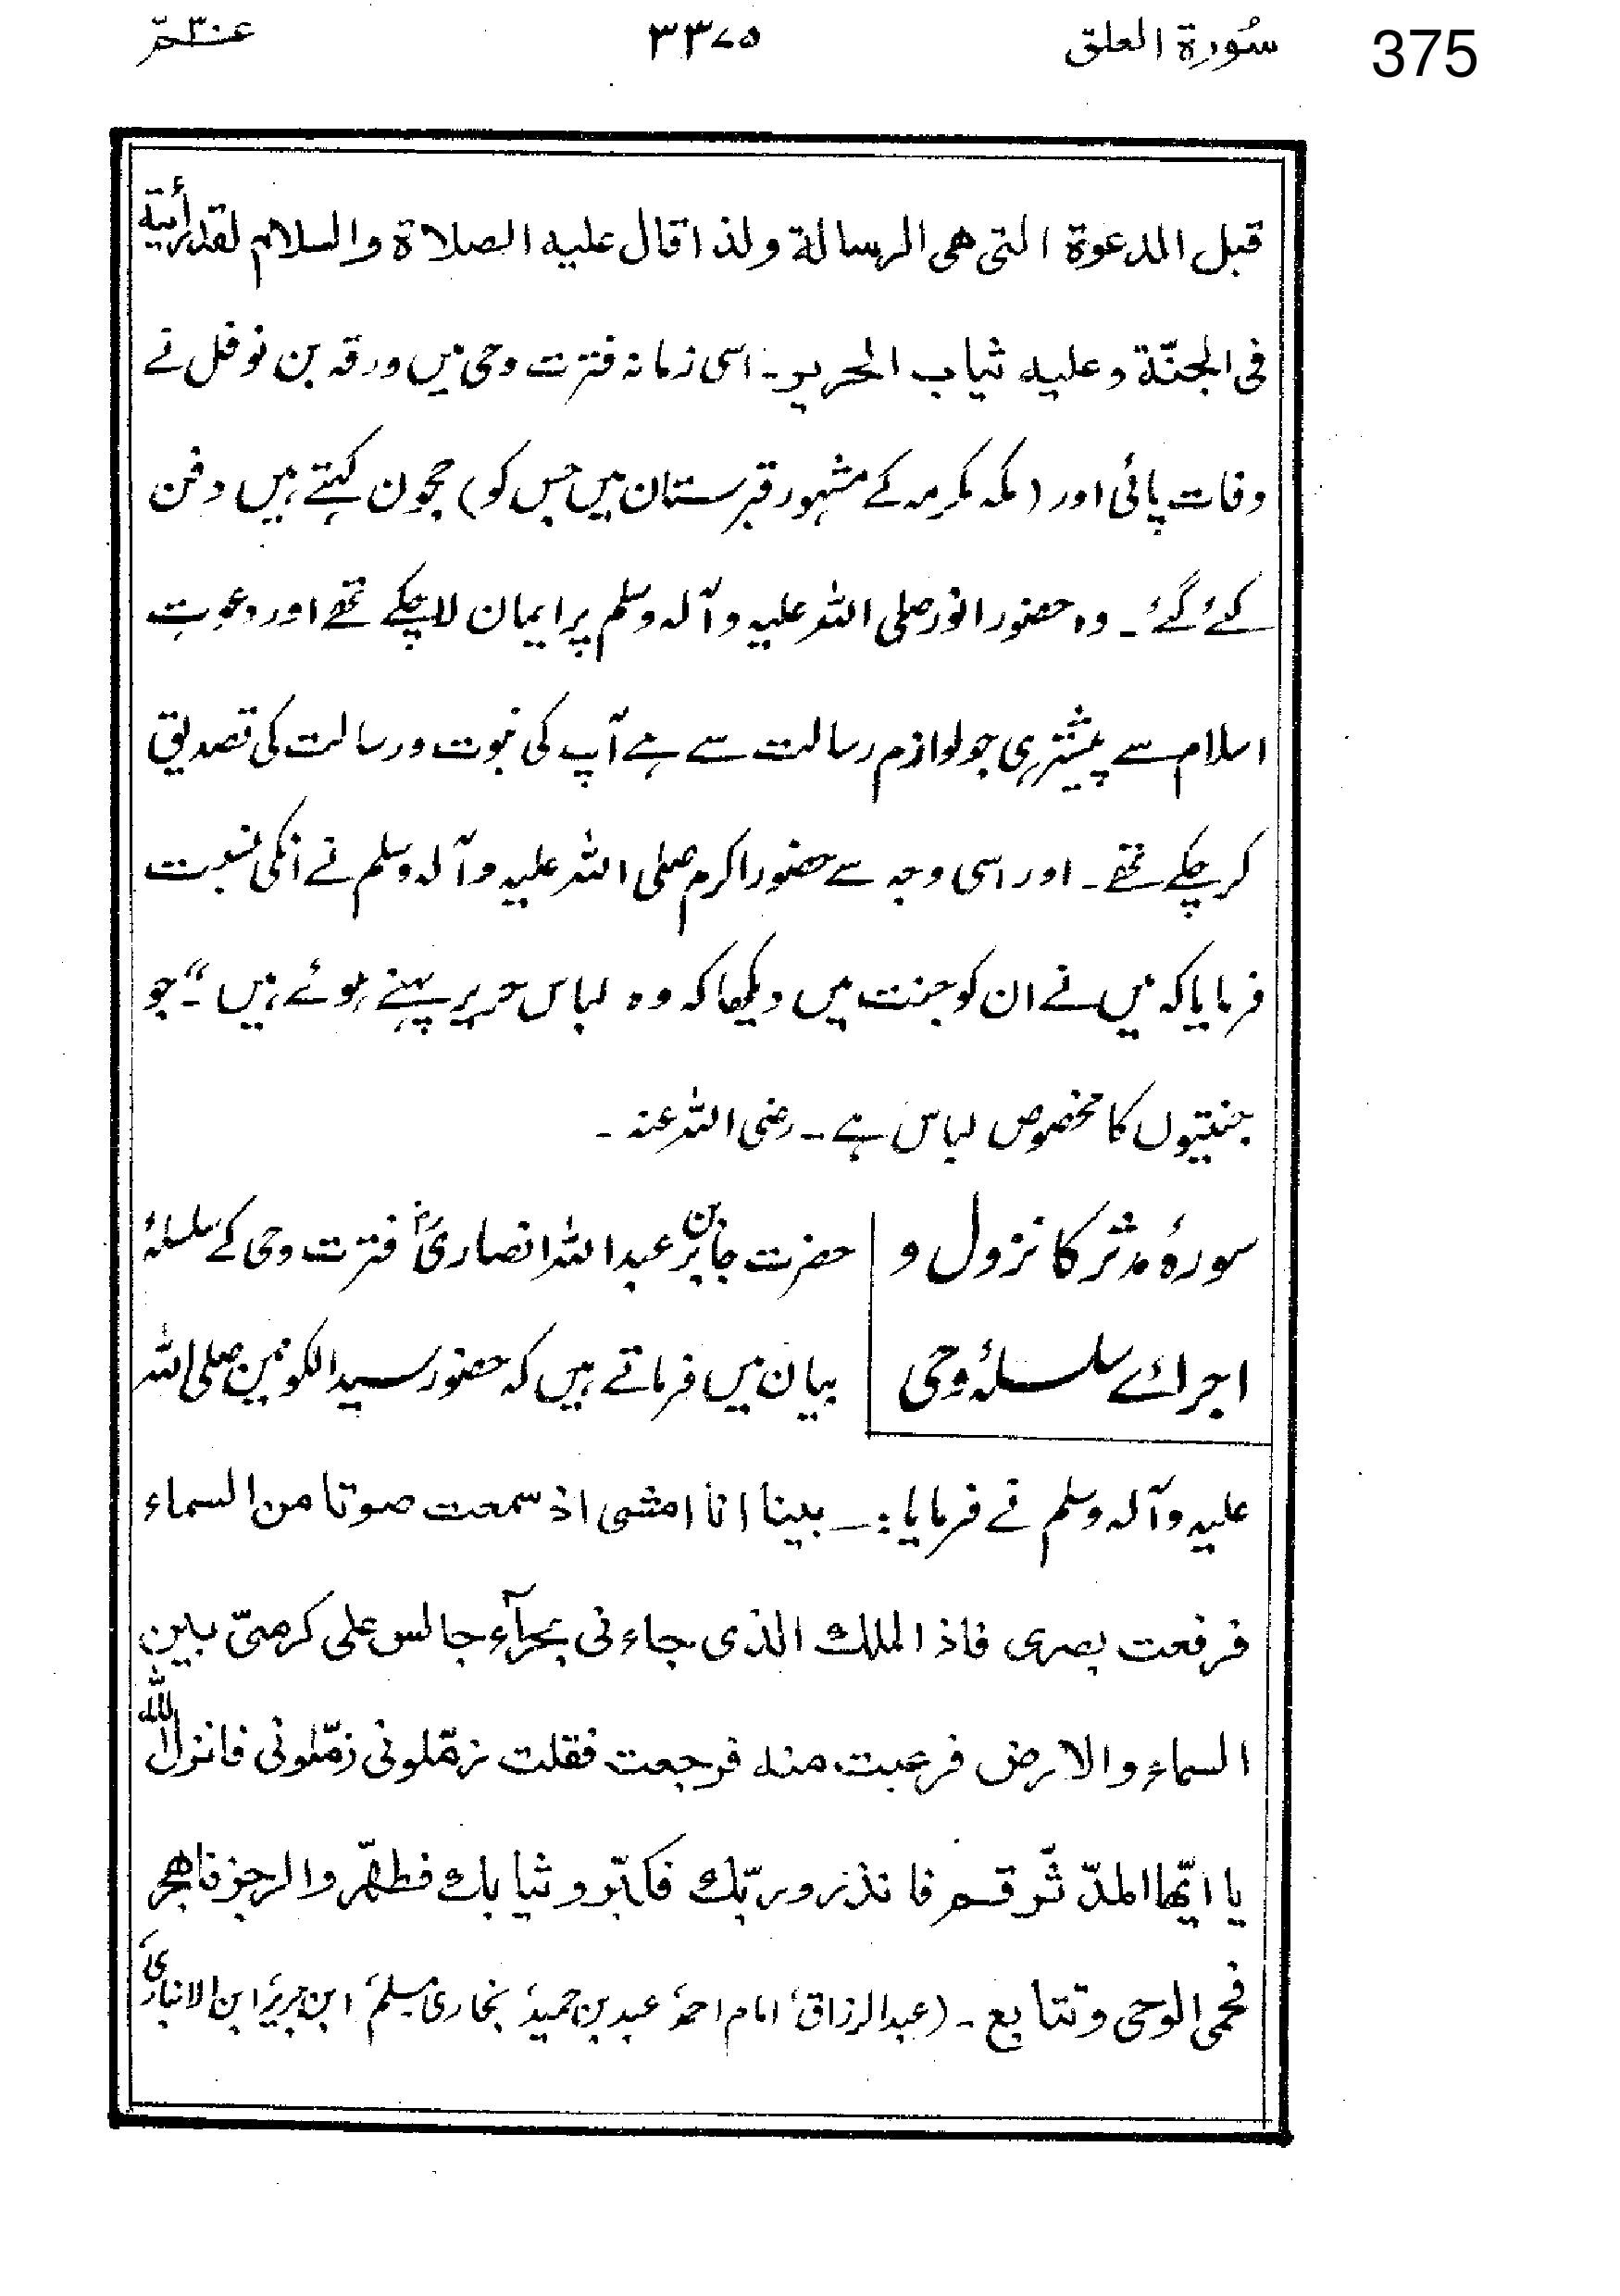 375
سُورۃ العلق
٣٣٧٥
عۃ ٣٠
قبل الدعوة التی هی الرسالة ولذا قال علیه الصلاة والسلام لقد رأیته
فی الجنّة وعلیه ثیاب الحریر۔ اسی زمانہ فترت وحی میں ورقہ بن نوفل نے
وفات پائی اور (مکہ مکرمہ کے مشہور قبرستان میں جس کو) حجون کہتے ہیں دفن
کئے گئے۔ وہ حضور انور صلی اللہ علیہ وآلہ وسلم پر ایمان لا چکے تھے اور دعوتِ
اسلام سے پیشتر ہی جو لوازم رسالت سے ہے آپ کی نبوت ورسالت کی تصدیق
کر چکے تھے۔ اور اسی وجہ سے حضور اکرم صلی اللہ علیہ وآلہ وسلم نے انکی نسبت
فرمایا کہ میں نے ان کو جنت میں دیکھا کہ وہ لباس حریر پہنے ہوئے ہیں"۔ جو
جنتیوں کا مخصوص لباس ہے۔ رضی اللہ عنہ۔
سورۂ مدثر کا نزول و
اجرائے سلسلۂ وحی
حضرت جابر بن عبداللہ انصاریؓ فترت وحی کے سلسلۂ
بیان میں فرماتے ہیں کہ حضور سید الکونین صلی اللہ
علیہ وآلہ وسلم نے فرمایا:۔ بینا انا امشی اذ سمعت صوتا من السماء
فرفعت بصری فاذا الملك الذی جاءنی بحرآء جالس علی کرسیّ بین
السماء والارض فرعبت منه فرجعت فقلت زمّلونی زمّلونی فانزل اللّٰه
یا ایّها المدّثّر قم فانذر وربّك فکبّر وثیابك فطهّر والرجز فاهجر
فحمی الوحی وتتابع۔ (عبدالرزاقؒ، امام احمدؒ عبد بن حمیدؒ بخاریؒ مسلمؒ ابن جریرؒ ابن الانباریؒ